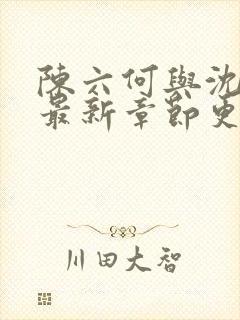 陳六何與沈
最新章節更
川田大智